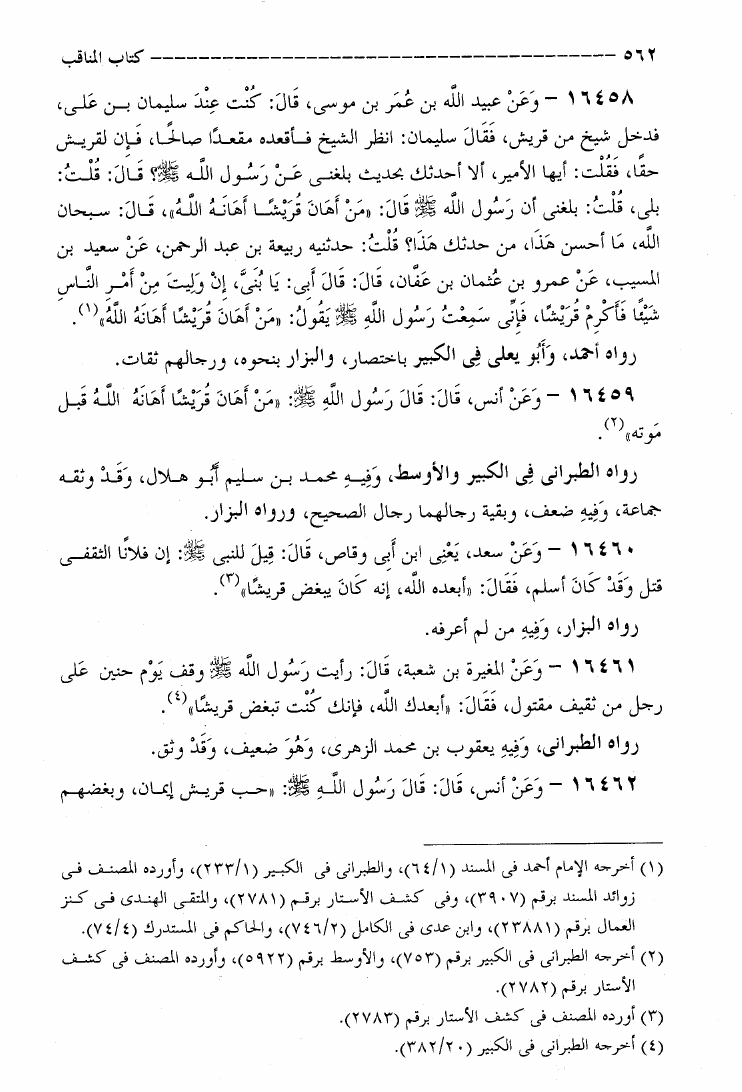 ٥٦٢ ------------------------------------- كتاب المناقب
١٦٤٥٨ – وَعَنْ عبيد اللَّه بن عُمَر بن موسى، قَالَ: كُنْت عِنْدَ سليمان بـن عَلـى،
فدخل شيخ من قريش، فَقَالَ سليمان: انظر الشيخ فـأقعده مقعـدًا صالحًـا، فَإِن لقريـش
حقًا، فَقُلْت: أيها الأمير، ألا أحدثك بحديث بلغنـى عَـنْ رَسُـول اللَّـه ﷺ؟ قَـالَ: قُلْـتُ:
بلى، قُلْتُ: بلغنى أن رَسُول اللَّه ﷺ قَالَ: «مَنْ أَهَانَ قُرَيْشًـا أَهَانَـهُ اللَّـهُ»، قَـالَ: سـبحان
اللَّه، مَا أحسن هَذَا، من حدثك هَذَا؟ قُلْتُ: حدثنيه ربيعة بن عبد الرحمن، عَنْ سعيد بن
المسيب، عَنْ عمرو بن عُثمان بن عَفَّان، قَالَ: قَالَ أَبِى: يَا بُنَىَّ، إِنْ وَلِيتَ مِنْ أَمْـرِ النَّـاسِ
شَيْئًا فَأَكْرِمْ قُرَيْشًا، فَإِنِّى سَمِعْتُ رَسُول اللَّهِ ﷺ يَقُولُ: «مَنْ أَهَانَ قُرَيْشًا أَهَانَهُ اللَّهُ»(١).
رواه أحمد، وَأَبُو يعلى فِى الكبير باختصار، والبزار بنحوه، ورجالهم ثقات.
١٦٤٥٩ – وَعَنْ أنس، قَالَ: قَالَ رَسُول اللَّهِ ﷺ: «مَنْ أَهَانَ قُرَيْشًا أَهَانَهُ اللَّـهُ قَبـل
مَوته»(٢).
رواه الطبرانى فِى الكبير والأوسط، وَفِيـهِ محمـد بـن سـليم أَبُـو هـلال، وَقَـدْ وثقـه
جماعة، وَفِيهِ ضعف، وبقية رجالهما رجال الصحيح، ورواه البزار.
١٦٤٦٠ – وَعَنْ سعد، يَعْنِى ابن أَبِى وقاص، قَالَ: قِيلَ للنبى ﷺ: إن فلانًا الثقفـى
قتل وَقَدْ كَانَ أسلم، فَقَالَ: «أبعده اللَّه، إنه كَانَ يبغض قريشًا»(٣).
رواه البزار، وَفِيهِ من لم أعرفه.
١٦٤٦١ – وَعَنْ المغيرة بن شعبة، قَالَ: رأيت رَسُول اللَّه ﷺ وقف يَوْم حنين عَلى
رجل من ثقيف مقتول، فَقَالَ: «أبعدك اللَّه، فإنك كُنْت تبغض قريشًا»(٤).
رواه الطبرانى، وَفِيهِ يعقوب بن محمد الزهرى، وَهُوَ ضعيف، وَقَدْ وثق.
١٦٤٦٢ – وَعَنْ أنس، قَالَ: قَالَ رَسُول اللَّـهِ ﷺ: «حـب قريـش إيمـان، وبغضهـم
(١) أخرجه الإمام أحمد فى المسند (٦٤/١)، والطبرانى فى الكبير (٢٣٣/١)، وأورده المصنـف فـى
زوائد المسند برقم (٣٩٠٧)، وفى كشـف الأسـتار برقـم (٢٧٨١)، والمتقـى الهنـدى فـى كنز
العمال برقم (٢٣٨٨١)، وابن عدى فى الكامل (٧٤٦/٢)، والحاكم فى المستدرك (٧٤/٤).
(٢) أخرجه الطبرانى فى الكبير برقم (٧٥٣)، والأوسط برقم (٥٩٢٢)، وأورده المصنف فى كشـف
الأستار برقم (٢٧٨٢).
(٣) أورده المصنف فى كشف الأستار برقم (٢٧٨٣).
(٤) أخرجه الطبرانى فى الكبير (٣٨٢/٢٠).